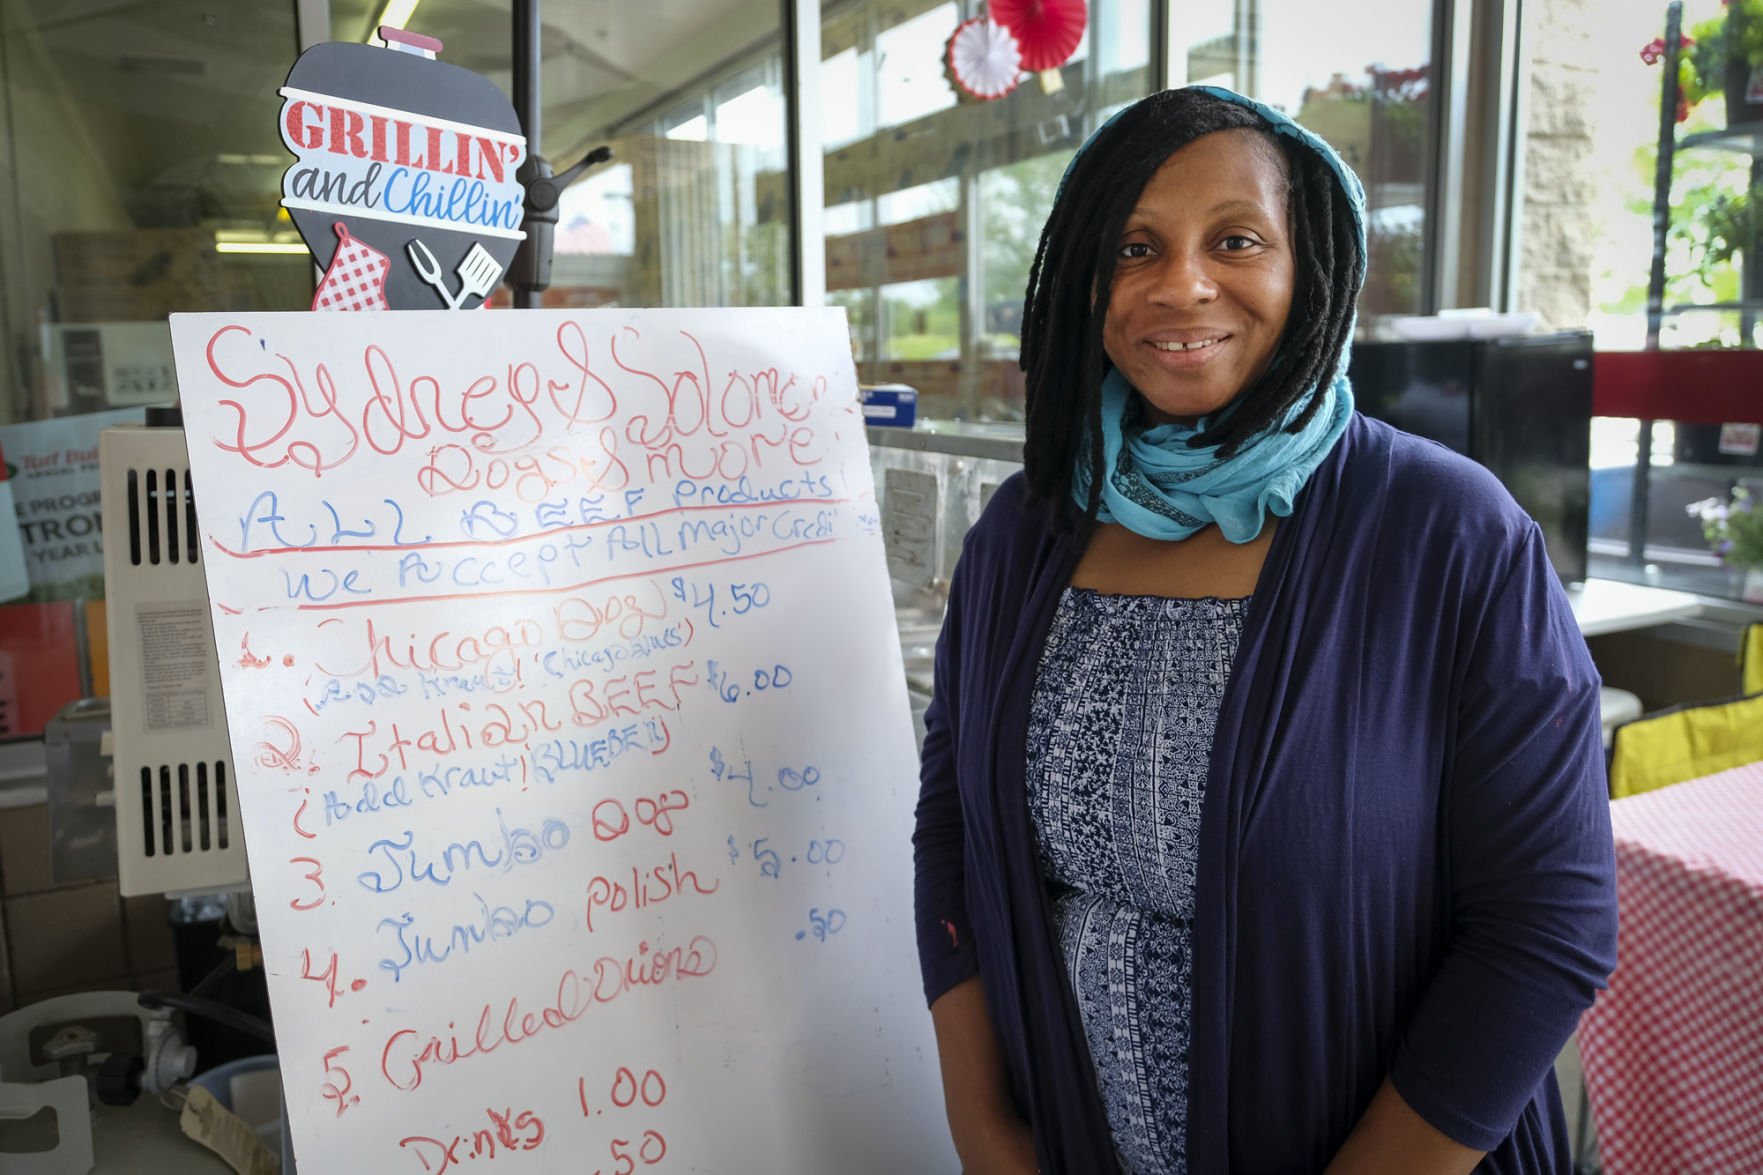 GRILLIN'
and Chillin'
Sydney & Solomon
Dogs & more
ALL BEEF Products!
We Accept All Major Credit
1. Chicago Dog $4.50
(Add Kraut! Chicago Blues)
2. Italian BEEF $6.00
(Add Kraut! BLUEBERY
3. Jumbo Dog $4.00
4. Jumbo Polish $5.00
5. Grilled Onions .50
Drinks 1.00
.50
Turf Bui
E PROG
TRO
YEAR L